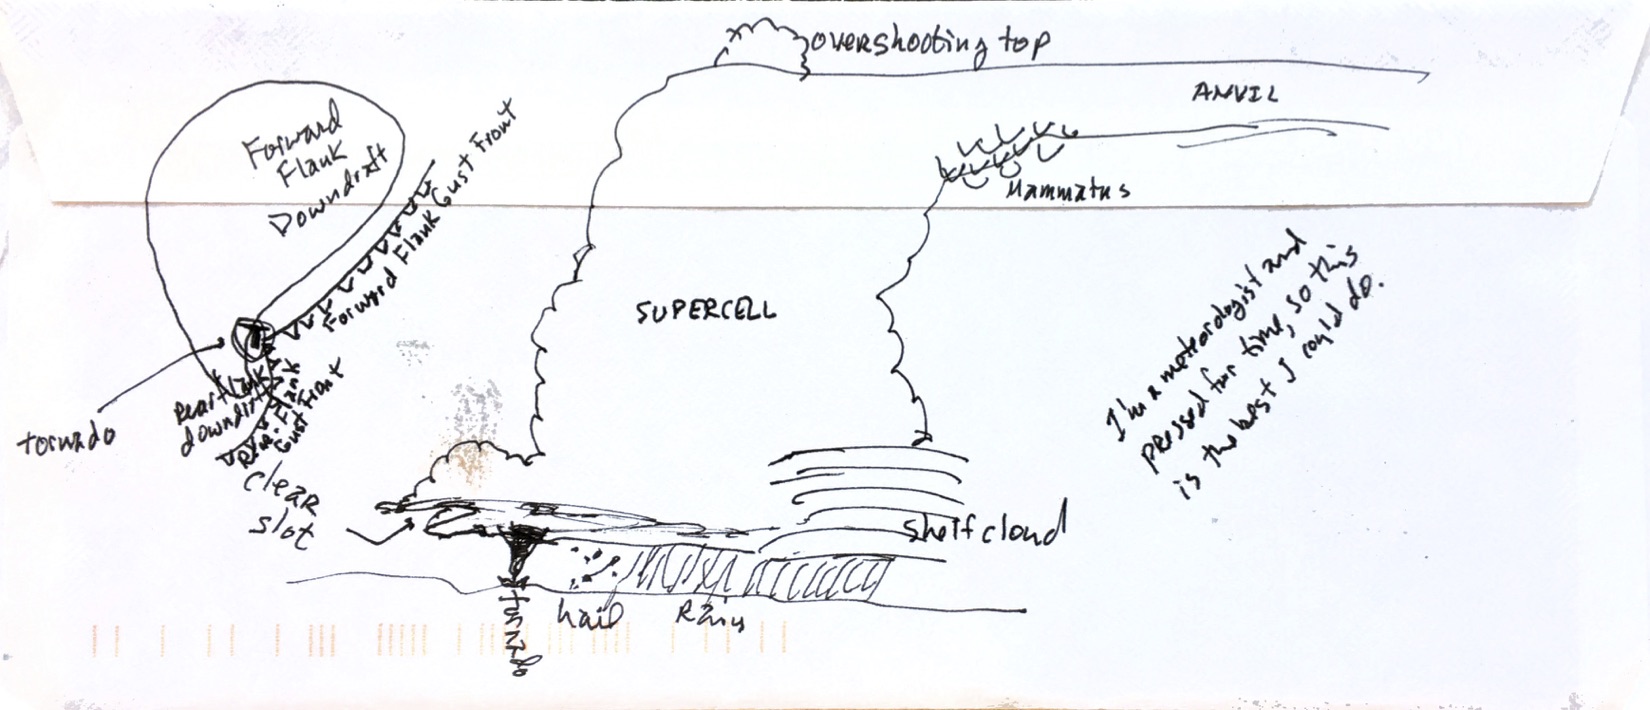 overshooting top
ANVIL
Mammatus
Forward
Flank
Downdraft
Forward Flank Gust Front
Rear Flank
downdraft
Rear Flank
Gust Front
tornado
SUPERCELL
I'm a meteorologist and
pressed for time, so this
is the best I could do.
clear
slot
shelf cloud
hail
Rain
tornado